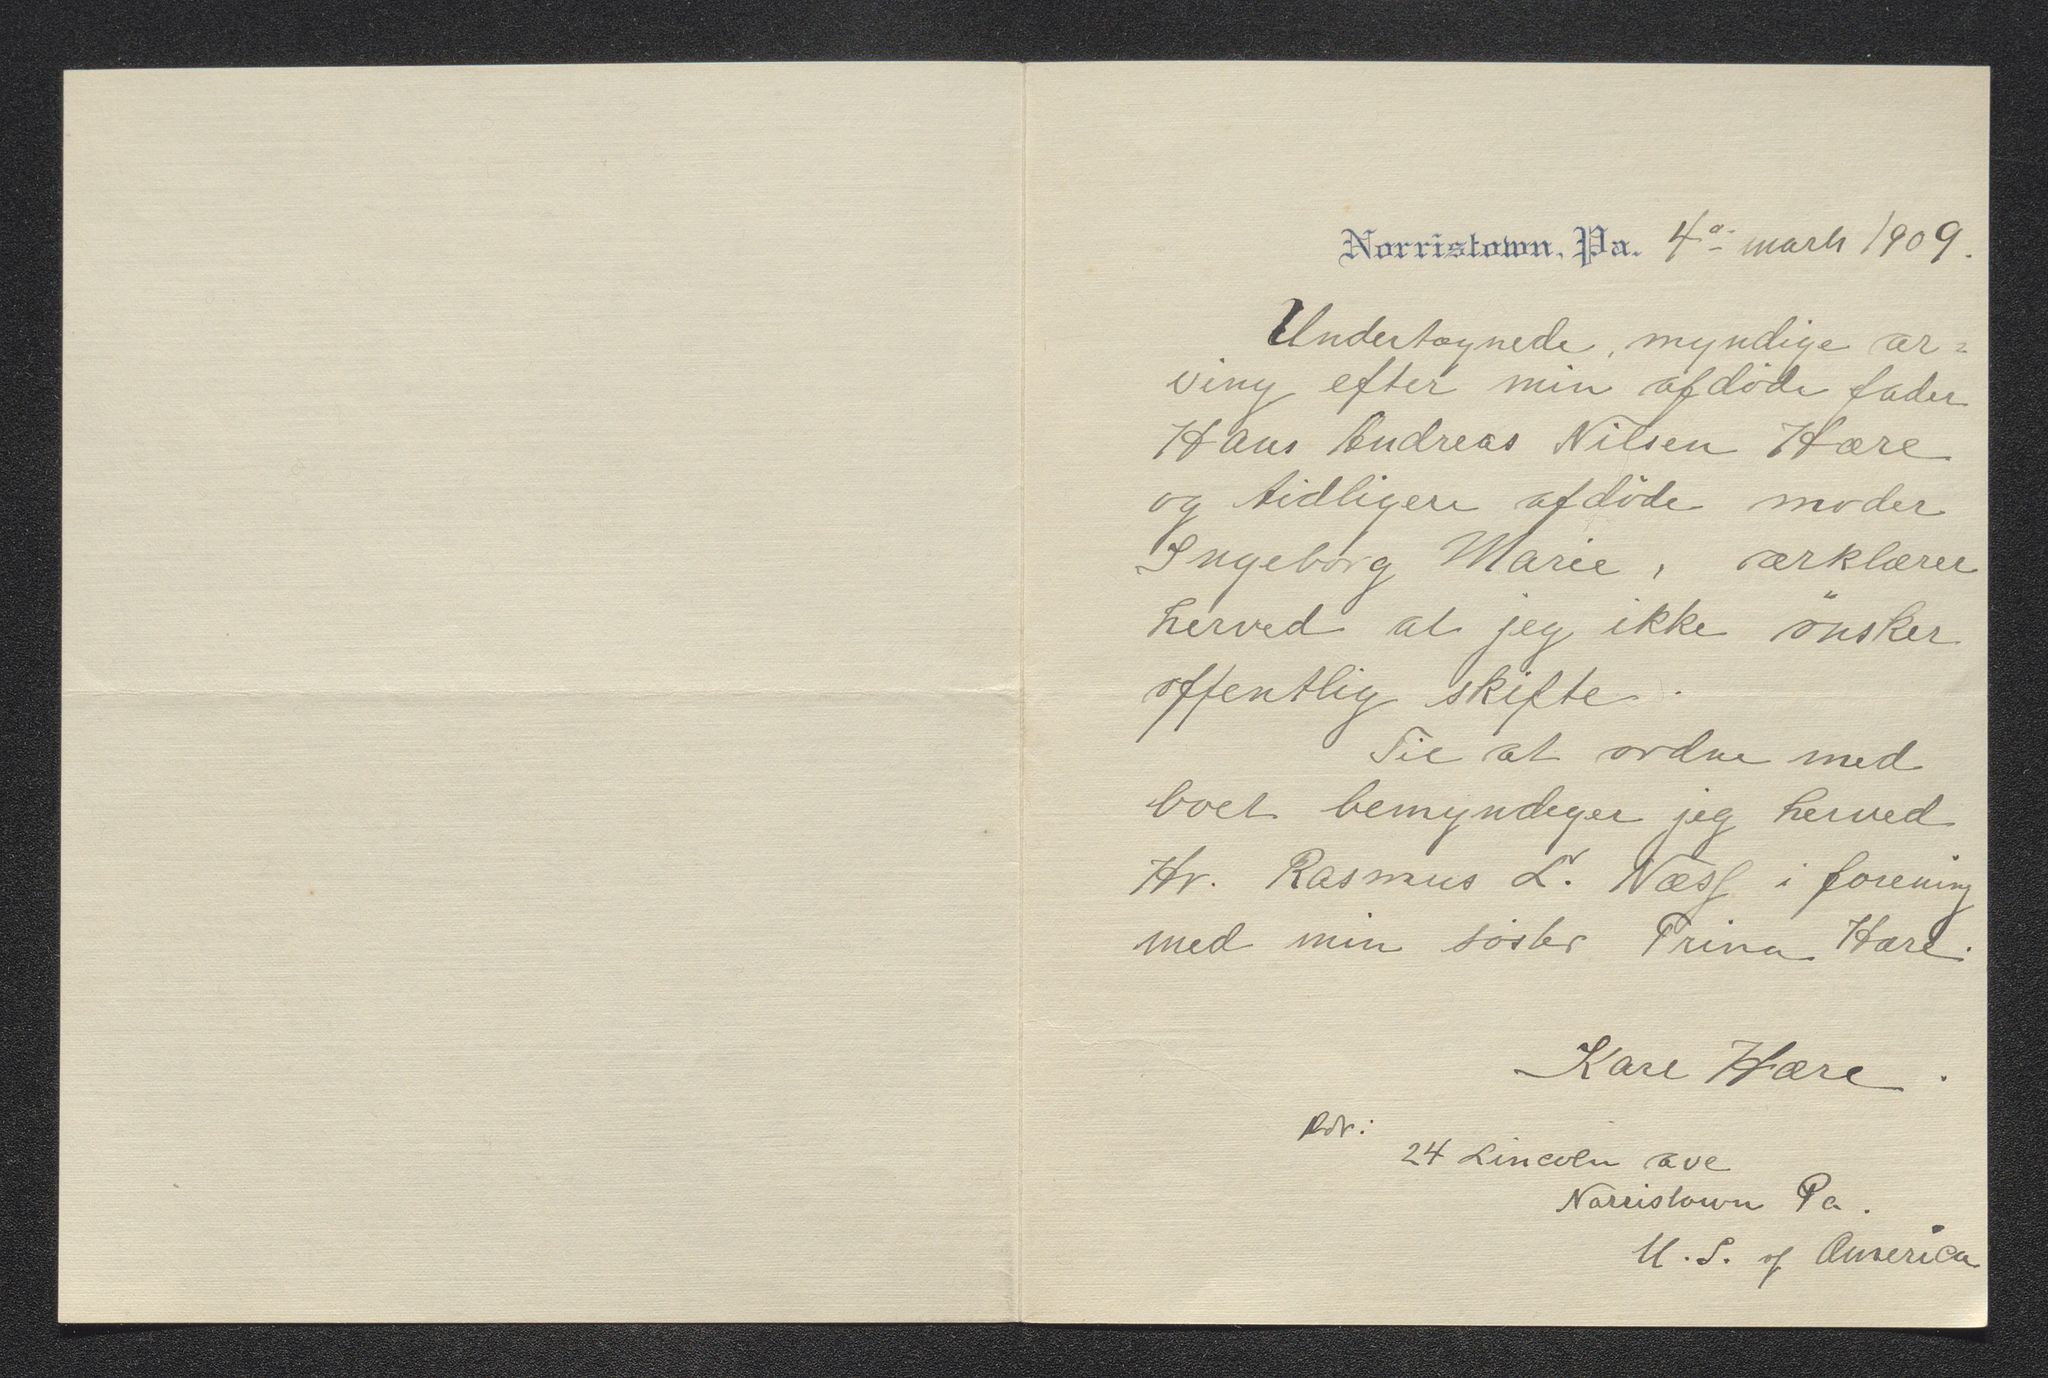 Norristown, Pa. 4de marts 1909.
Undertegnede, myndige ar=
ving efter min afdöde fader
Hans Andreas Nilsen Hære
og tidligere afdöde moder
Ingeborg Marie, ærklærer
herved at jeg ikke önsker
offentlig skifte.
Til at ordne med
boet bemyndeger jeg herved
Hr. Rasmus L. Næss i forening
med min söster Trina Hære.
Karl Hære.
Adr:
24 Lincoln ave
Norristown Pa.
U. S. of America